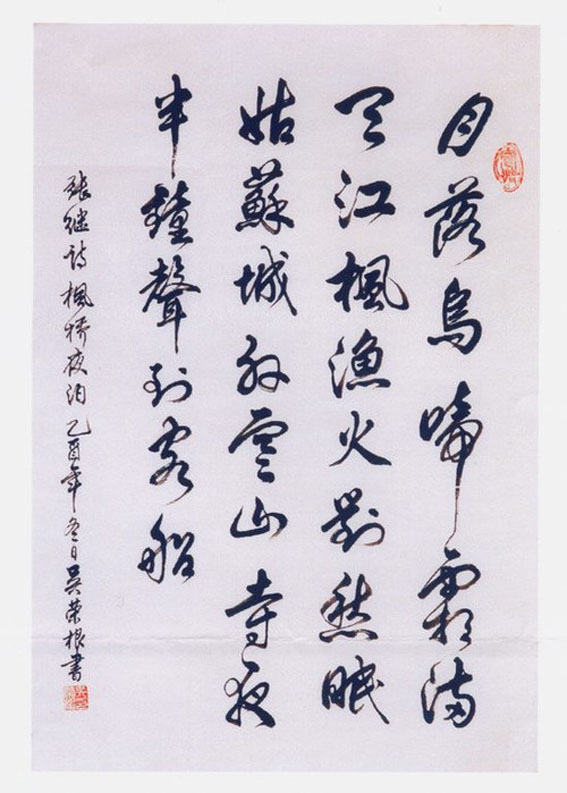 月落烏啼霜滿
天江楓漁火對愁眠
姑蘇城外寒山寺夜
半鐘聲到客船
張继诗楓橋夜泊 乙酉年冬日吴荣根書